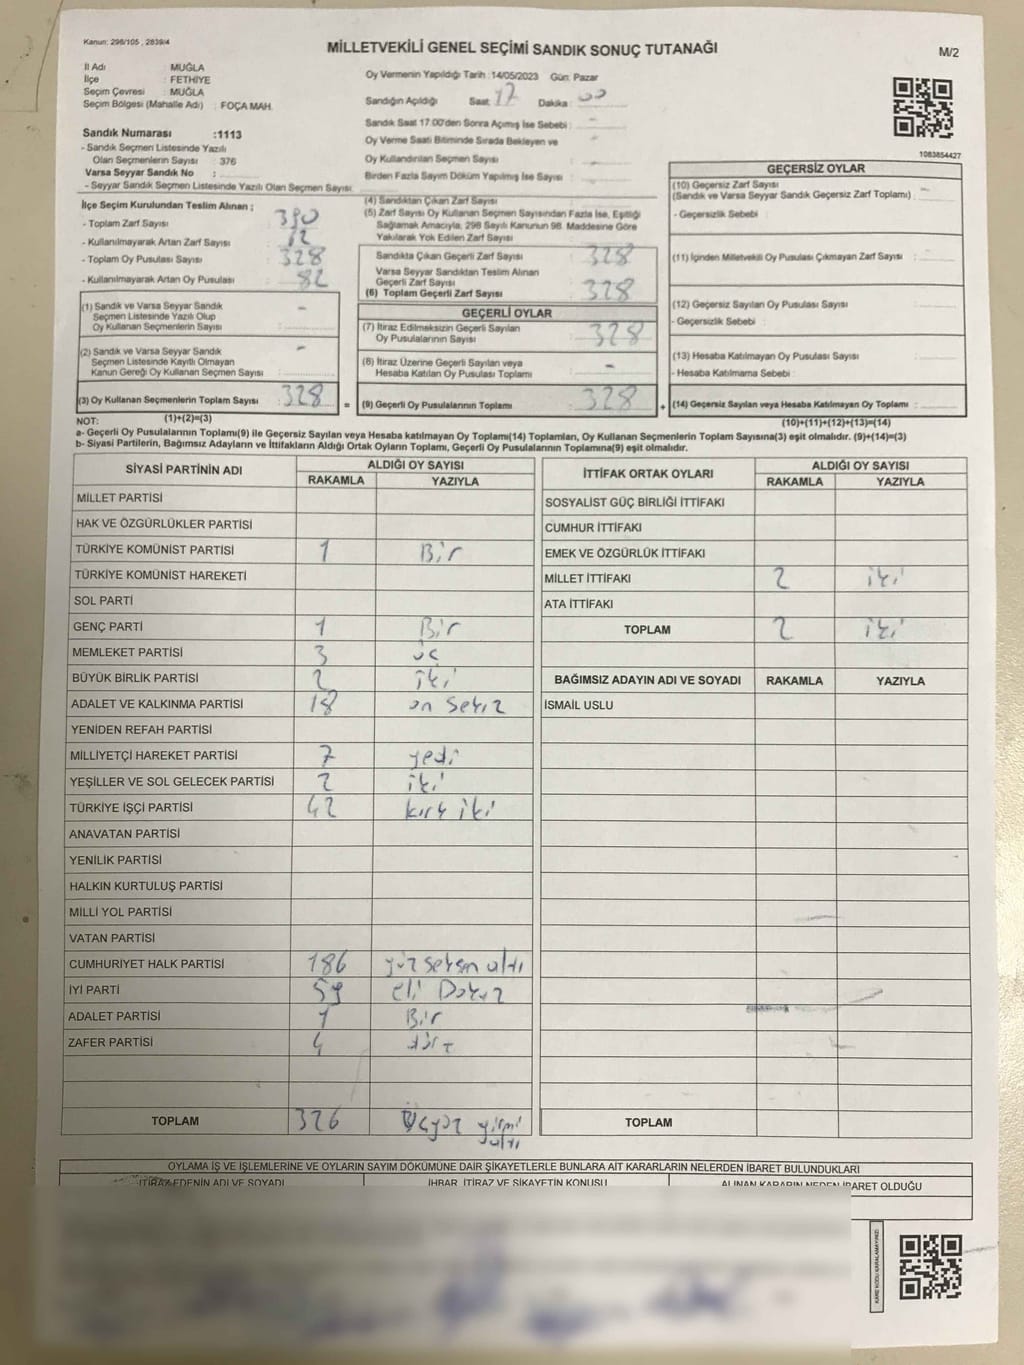 Kanun: 298/105 , 2839/4
MİLLETVEKİLİ GENEL SEÇİMİ SANDIK SONUÇ TUTANAĞI
M/2
İl Adı : MUĞLA
İlçe : FETHİYE
Seçim Çevresi : MUĞLA
Seçim Bölgesi (Mahalle Adı) : FOÇA MAH.
Oy Vermenin Yapıldığı Tarih :14/05/2023 Gün: Pazar
Sandığın Açıldığı Saat: 17 Dakika : 00
Sandık Saat 17.00'den Sonra Açılmış İse Sebebi :
Oy Verme Saati Bitiminde Sırada Bekleyen ve
Oy Kullandırılan Seçmen Sayısı :
Birden Fazla Sayım Döküm Yapılmış İse Sayısı :
1083854427
Sandık Numarası :1113
- Sandık Seçmen Listesinde Yazılı
Olan Seçmenlerin Sayısı : 376
Varsa Seyyar Sandık No :
- Seyyar Sandık Seçmen Listesinde Yazılı Olan Seçmen Sayısı:
İlçe Seçim Kurulundan Teslim Alınan ;
- Toplam Zarf Sayısı : 390
- Kullanılmayarak Artan Zarf Sayısı :
- Toplam Oy Pusulası Sayısı : 328
- Kullanılmayarak Artan Oy Pusulası : 82
(1) Sandık ve Varsa Seyyar Sandık
Seçmen Listesinde Yazılı Olup
Oy Kullanan Seçmenlerin Sayısı : -
(2) Sandık ve Varsa Seyyar Sandık
Seçmen Listesinde Kayıtlı Olmayan
Kanun Gereği Oy Kullanan Seçmen Sayısı : -
(3) Oy Kullanan Seçmenlerin Toplam Sayısı : 328
(4) Sandıktan Çıkan Zarf Sayısı :
(5) Zarf Sayısı Oy Kullanan Seçmen Sayısından Fazla İse, Eşitliği
Sağlamak Amacıyla, 298 Sayılı Kanunun 98. Maddesine Göre
Yakılarak Yok Edilen Zarf Sayısı :
Sandıkta Çıkan Geçerli Zarf Sayısı : 328
Varsa Seyyar Sandıktan Teslim Alınan
Geçerli Zarf Sayısı :
(6) Toplam Geçerli Zarf Sayısı : 328
GEÇERLİ OYLAR
(7) İtiraz Edilmeksizin Geçerli Sayılan
Oy Pusulalarının Sayısı : 328
(8) İtiraz Üzerine Geçerli Sayılan veya
Hesaba Katılan Oy Pusulası Toplamı : -
= (9) Geçerli Oy Pusulalarının Toplamı : 328
GEÇERSİZ OYLAR
(10) Geçersiz Zarf Sayısı
(Sandık ve Varsa Seyyar Sandık Geçersiz Zarf Toplamı) :
- Geçersizlik Sebebi :
(11) İçinden Milletvekili Oy Pusulası Çıkmayan Zarf Sayısı :
(12) Geçersiz Sayılan Oy Pusulası Sayısı :
- Geçersizlik Sebebi :
(13) Hesaba Katılmayan Oy Pusulası Sayısı :
- Hesaba Katılmama Sebebi :
+ (14) Geçersiz Sayılan veya Hesaba Katılmayan Oy Toplamı :
NOT: (1)+(2)=(3) (10)+(11)+(12)+(13)=(14)
a- Geçerli Oy Pusulalarının Toplamı(9) ile Geçersiz Sayılan veya Hesaba katılmayan Oy Toplamı(14) Toplamları, Oy Kullanan Seçmenlerin Toplam Sayısına(3) eşit olmalıdır. (9)+(14)=(3)
b- Siyasi Partilerin, Bağımsız Adayların ve İttifakların Aldığı Ortak Oyların Toplamı, Geçerli Oy Pusulalarının Toplamına(9) eşit olmalıdır.
SİYASİ PARTİNİN ADI ALDIĞI OY SAYISI
RAKAMLA YAZIYLA
MİLLET PARTİSİ
HAK VE ÖZGÜRLÜKLER PARTİSİ
TÜRKİYE KOMÜNİST PARTİSİ 1 Bir
TÜRKİYE KOMÜNİST HAREKETİ
SOL PARTİ
GENÇ PARTİ 1 Bir
MEMLEKET PARTİSİ 3 üç
BÜYÜK BİRLİK PARTİSİ 2 iki
ADALET VE KALKINMA PARTİSİ 18 on sekiz
YENİDEN REFAH PARTİSİ
MİLLİYETÇİ HAREKET PARTİSİ 7 yedi
YEŞİLLER VE SOL GELECEK PARTİSİ 2 iki
TÜRKİYE İŞÇİ PARTİSİ 42 kırk iki
ANAVATAN PARTİSİ
YENİLİK PARTİSİ
HALKIN KURTULUŞ PARTİSİ
MİLLİ YOL PARTİSİ
VATAN PARTİSİ
CUMHURİYET HALK PARTİSİ 186 yüz seksen altı
İYİ PARTİ 59 elli Dokuz
ADALET PARTİSİ 1 Bir
ZAFER PARTİSİ 4 dört
TOPLAM 326 Üçyüz yirmi altı
İTTİFAK ORTAK OYLARI ALDIĞI OY SAYISI
RAKAMLA YAZIYLA
SOSYALİST GÜÇ BİRLİĞİ İTTİFAKI
CUMHUR İTTİFAKI
EMEK VE ÖZGÜRLÜK İTTİFAKI
MİLLET İTTİFAKI 2 iki
ATA İTTİFAKI
TOPLAM 2 iki
BAĞIMSIZ ADAYIN ADI VE SOYADI RAKAMLA YAZIYLA
İSMAİL USLU
TOPLAM
OYLAMA İŞ VE İŞLEMLERİNE VE OYLARIN SAYIM DÖKÜMÜNE DAİR ŞİKAYETLERLE BUNLARA AİT KARARLARIN NELERDEN İBARET BULUNDUKLARI
İTİRAZ EDENİN ADI VE SOYADI İHBAR, İTİRAZ VE ŞİKAYETİN KONUSU ALINAN KARARIN NEDEN İBARET OLDUĞU
KARE KODU KARALAMAYINIZ!